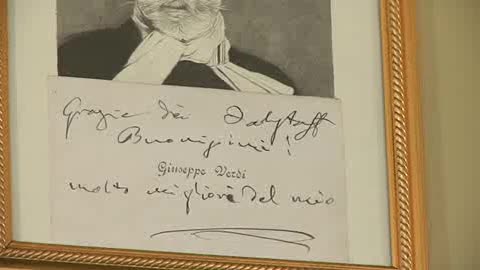 Grazie dei Falstaff
Buonissimi!
Giuseppe Verdi
molto migliori del mio